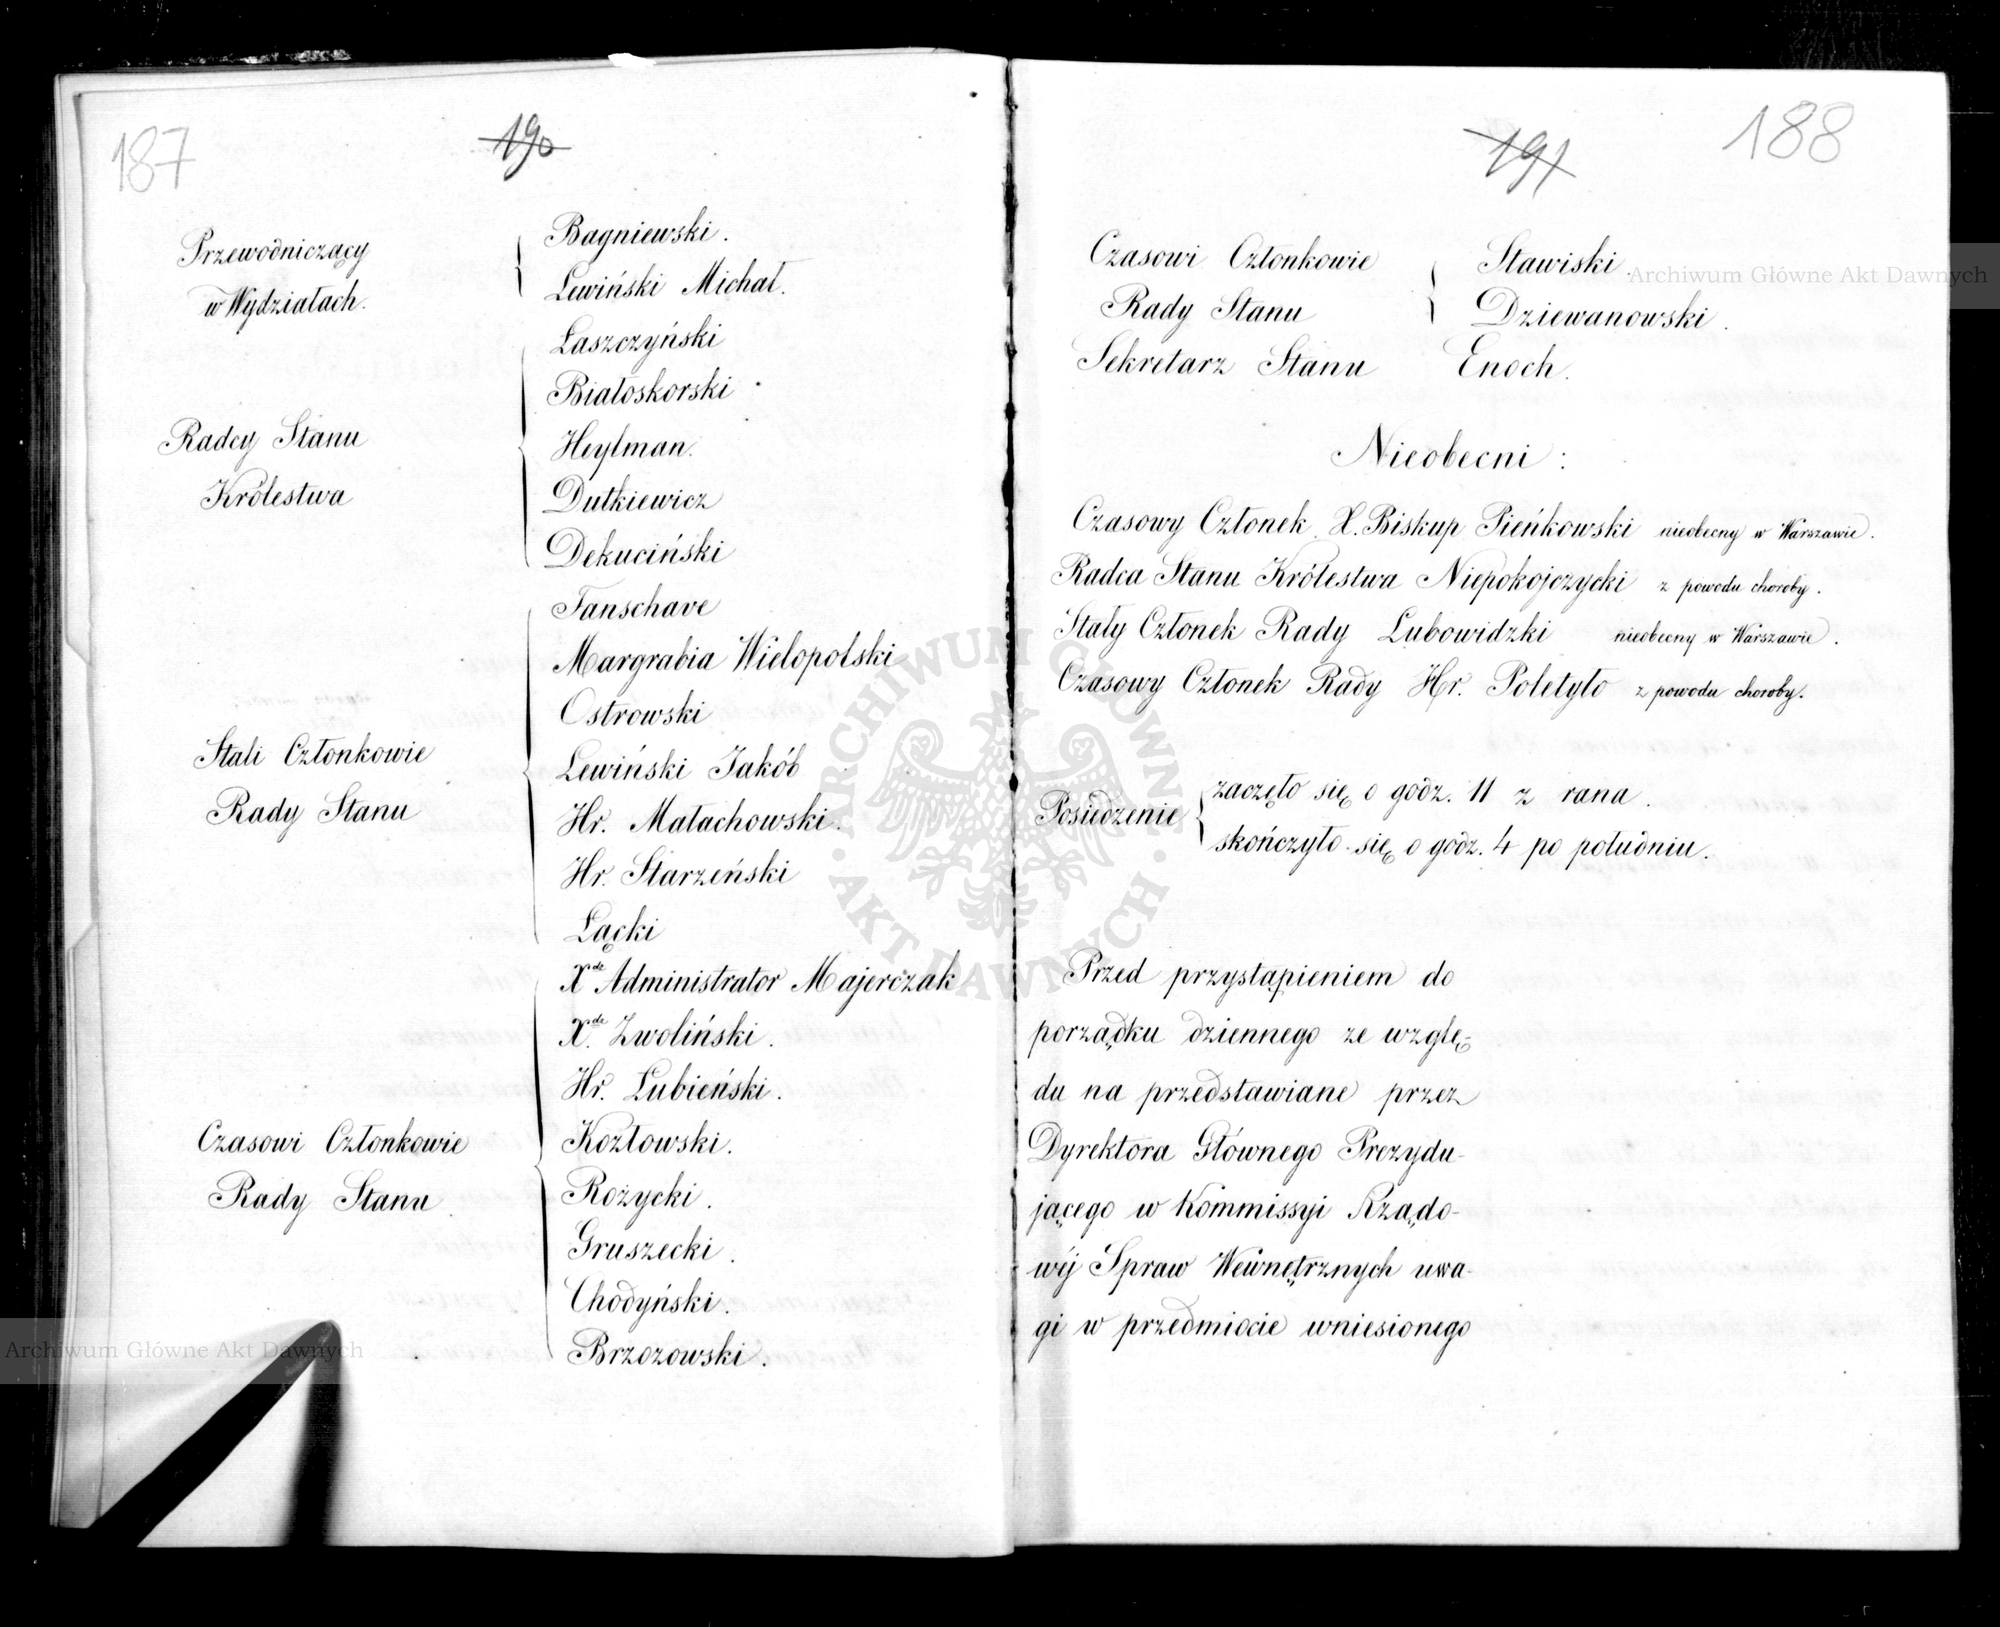 187
190
Przewodniczący
w Wydziałach.
Bagniewski.
Lewiński Michał.
Radcy Stanu
Królestwa
Łaszczyński
Białoskorski
Heylman.
Dutkiewicz
Dekuciński
Stali Członkowie
Rady Stanu
Fanschave
Margrabia Wielopolski
Ostrowski
Lewiński Jakób
Hr. Małachowski.
Hr. Starzeński
Łącki
Czasowi Członkowie
Rady Stanu.
X.de Administrator Majerczak
X.de Zwoliński.
Hr. Łubieński.
Kozłowski.
Rożycki.
Gruszecki.
Chodyński.
Brzozowski.
191
188
Czasowi Członkowie
Rady Stanu
Stawiski.
Dziewanowski.
Sekretarz Stanu Enoch.
Nieobecni:
Czasowy Członek X. Biskup Pieńkowski nieobecny w Warszawie.
Radca Stanu Królestwa Niepokojczycki z powodu choroby.
Stały Członek Rady Lubowidzki nieobecny w Warszawie.
Czasowy Członek Rady Hr. Poletyło z powodu choroby.
Posiedzenie
zaczęło się o godz. 11 z rana.
skończyło się o godz. 4 po południu.
Przed przystąpieniem do
porządku dziennego ze wzglę-
du na przedstawiane przez
Dyrektora Głównego Prezydu-
jącego w Kommissyi Rządo-
wéj Spraw Wewnętrznych uwa-
gi w przedmiocie wniesionego
Archiwum Główne Akt Dawnych
Archiwum Główne Akt Dawnych
ARCHIWUM GŁÓWNE
AKT DAWNYCH